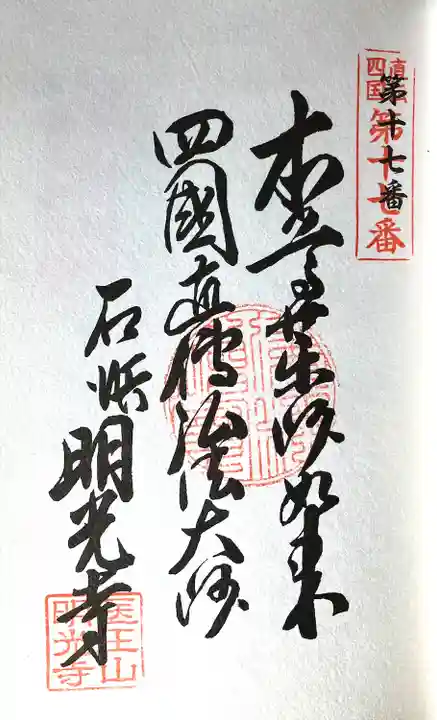 四国直
第十七番
第十七番
本尊薬師如来
四國直傳弘法大師
石浜明光寺
医王山
明光寺